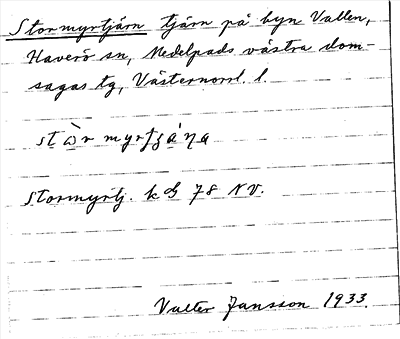 Stormyrtjärn tjärn på byn Vallen,
Haverö sn, Medelpads västra dom-
sagas tg, Västernorrl. l.
Stormyrtj. kbl 78 NV.
Valter Jansson 1933.